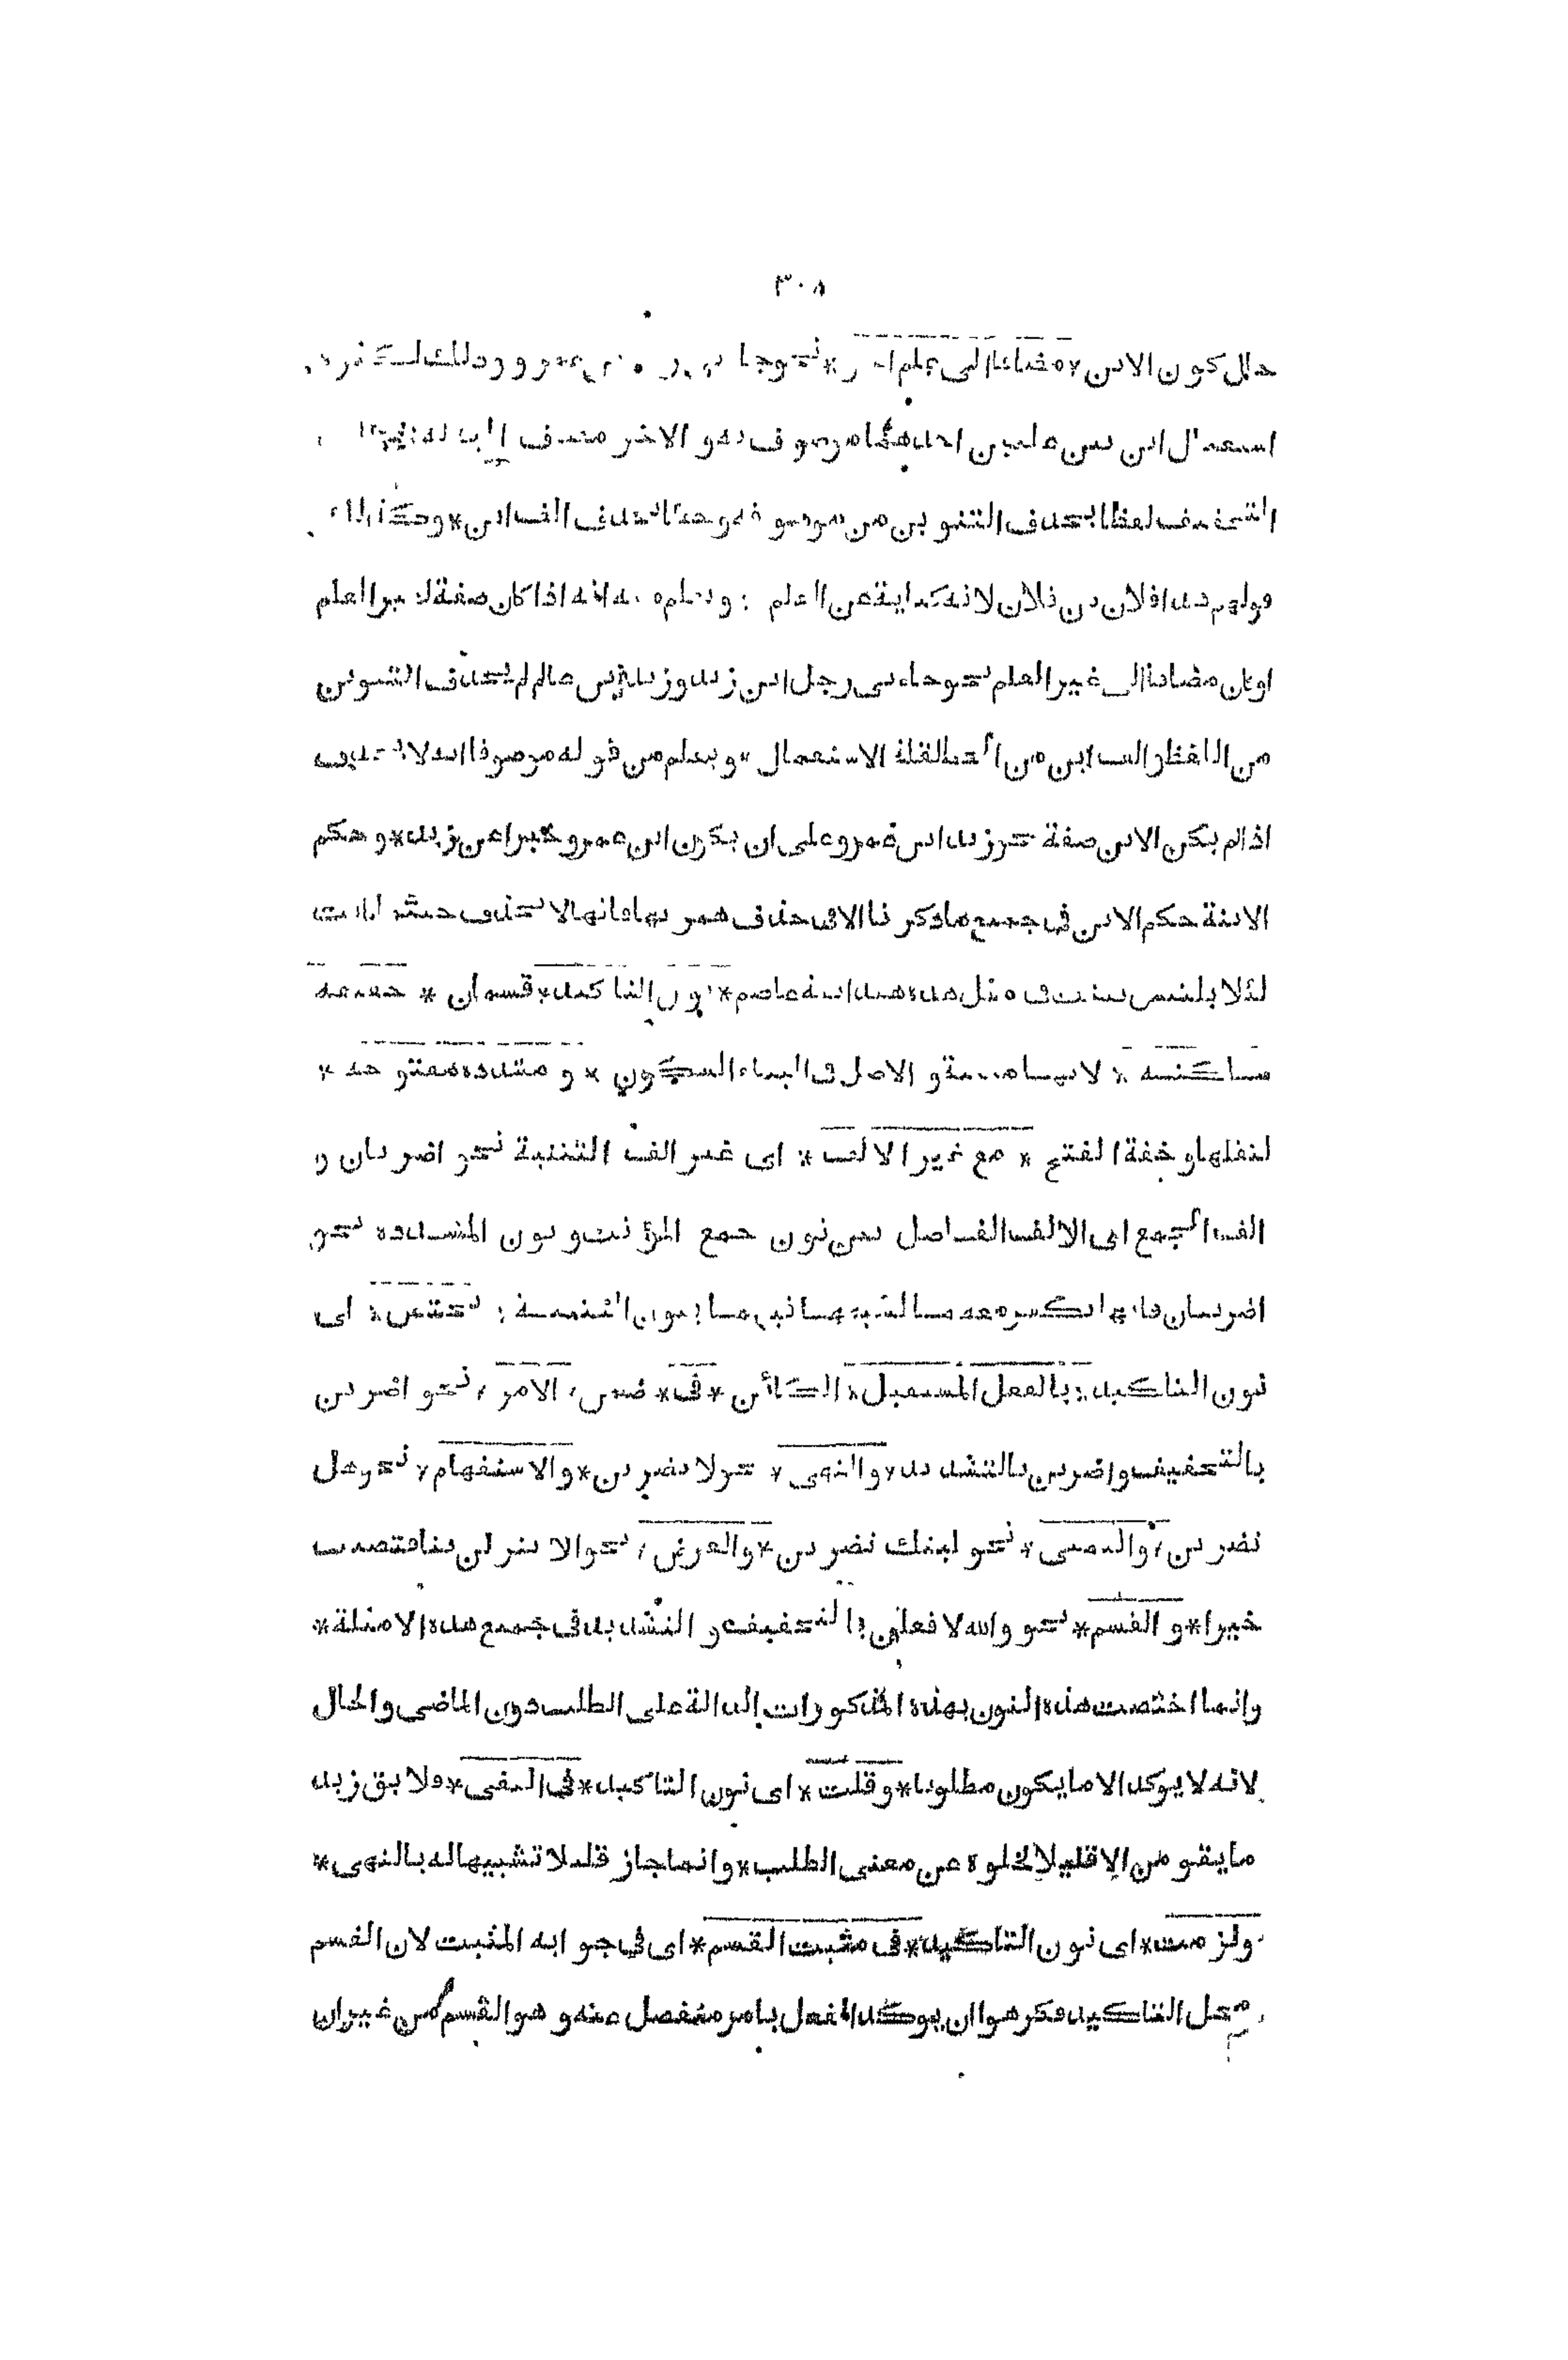 ٣٠٨
حال كون الابن * مضافا الى علم اخر * نحو جا عمرو وذلك لكثرة
استعمال ابن بين علمين احدهما موصوف وهو الاخر مضاف اليه
التخفيف لفظا بحذف التنوين من موصوفه وخطا بحذف الف ابن * وحكذا
قولهم هذا فلان بن فلان لانه كناية عن العلم * وعلم منه انه اذا كان صفة لغير العلم
او كان مضافا الى غير العلم نحو جاءنى رجل ابن زيد وزيد ابن عالم لم يحذف التنوين
من اللفظ والف ابن من الخط لقلة الاستعمال * ويعلم من قوله موصوفا انه لا يحذف
اذا لم يكن الابن صفة نحو زيد ابن عمرو على ان يكون ابن عمرو خبرا عن زيد * وحكم
الابنة حكم الابن فى جميع ما ذكرنا الا فى حذف همزتها فانها لا تحذف حيث كانت
لئلا يلتبس ببنت فى مثل هذه هند ابنة عاصم * نون التاكيد * قسمان * خفيفة
ساكنة * لانها مبنية والاصل فى البناء السكون * و مشددة مفتوحة *
لثقلها وخفة الفتح * مع غير الالف * اى غير الف التثنية نحو اضربان و
الف الجمع اى الالف الفاصل بين نون جمع المؤنث ونون المشددة نحو
اضربنان فانها تكسر معهما لشبههما بنون التثنية * تختص * اى
نون التاكيد * بالفعل المستقبل * الكائن * فى * ضمن * الامر * نحو اضربن
بالتخفيف واضربن بالتشديد * والنهى * نحو لا تضربن * والاستفهام * نحو هل
تضربن * والتمنى * نحو ليتك تضربن * والعرض * نحو الا تنزلن بنا فتصيب
خيرا * و القسم * نحو والله لافعلن بالتخفيف و التشديد فى جميع هذه الامثلة *
وانما اختصت هذه النون بهذه المذكورات الدالة على الطلب دون الماضى والحال
لانه لا يوكد الا ما يكون مطلوبا * وقلت * اى نون التاكيد * فى النفى * فلا يق زيد
ما يقومن الا قليلا لخلوه عن معنى الطلب * وانما جاز قليلا تشبيها له بالنهى *
ولزمت * اى نون التاكيد * فى مثبت القسم * اى فى جوابه المثبت لان القسم
محل التاكيد فكرهوا ان يوكد الفعل بامر منفصل عنه و هو القسم من غير ان